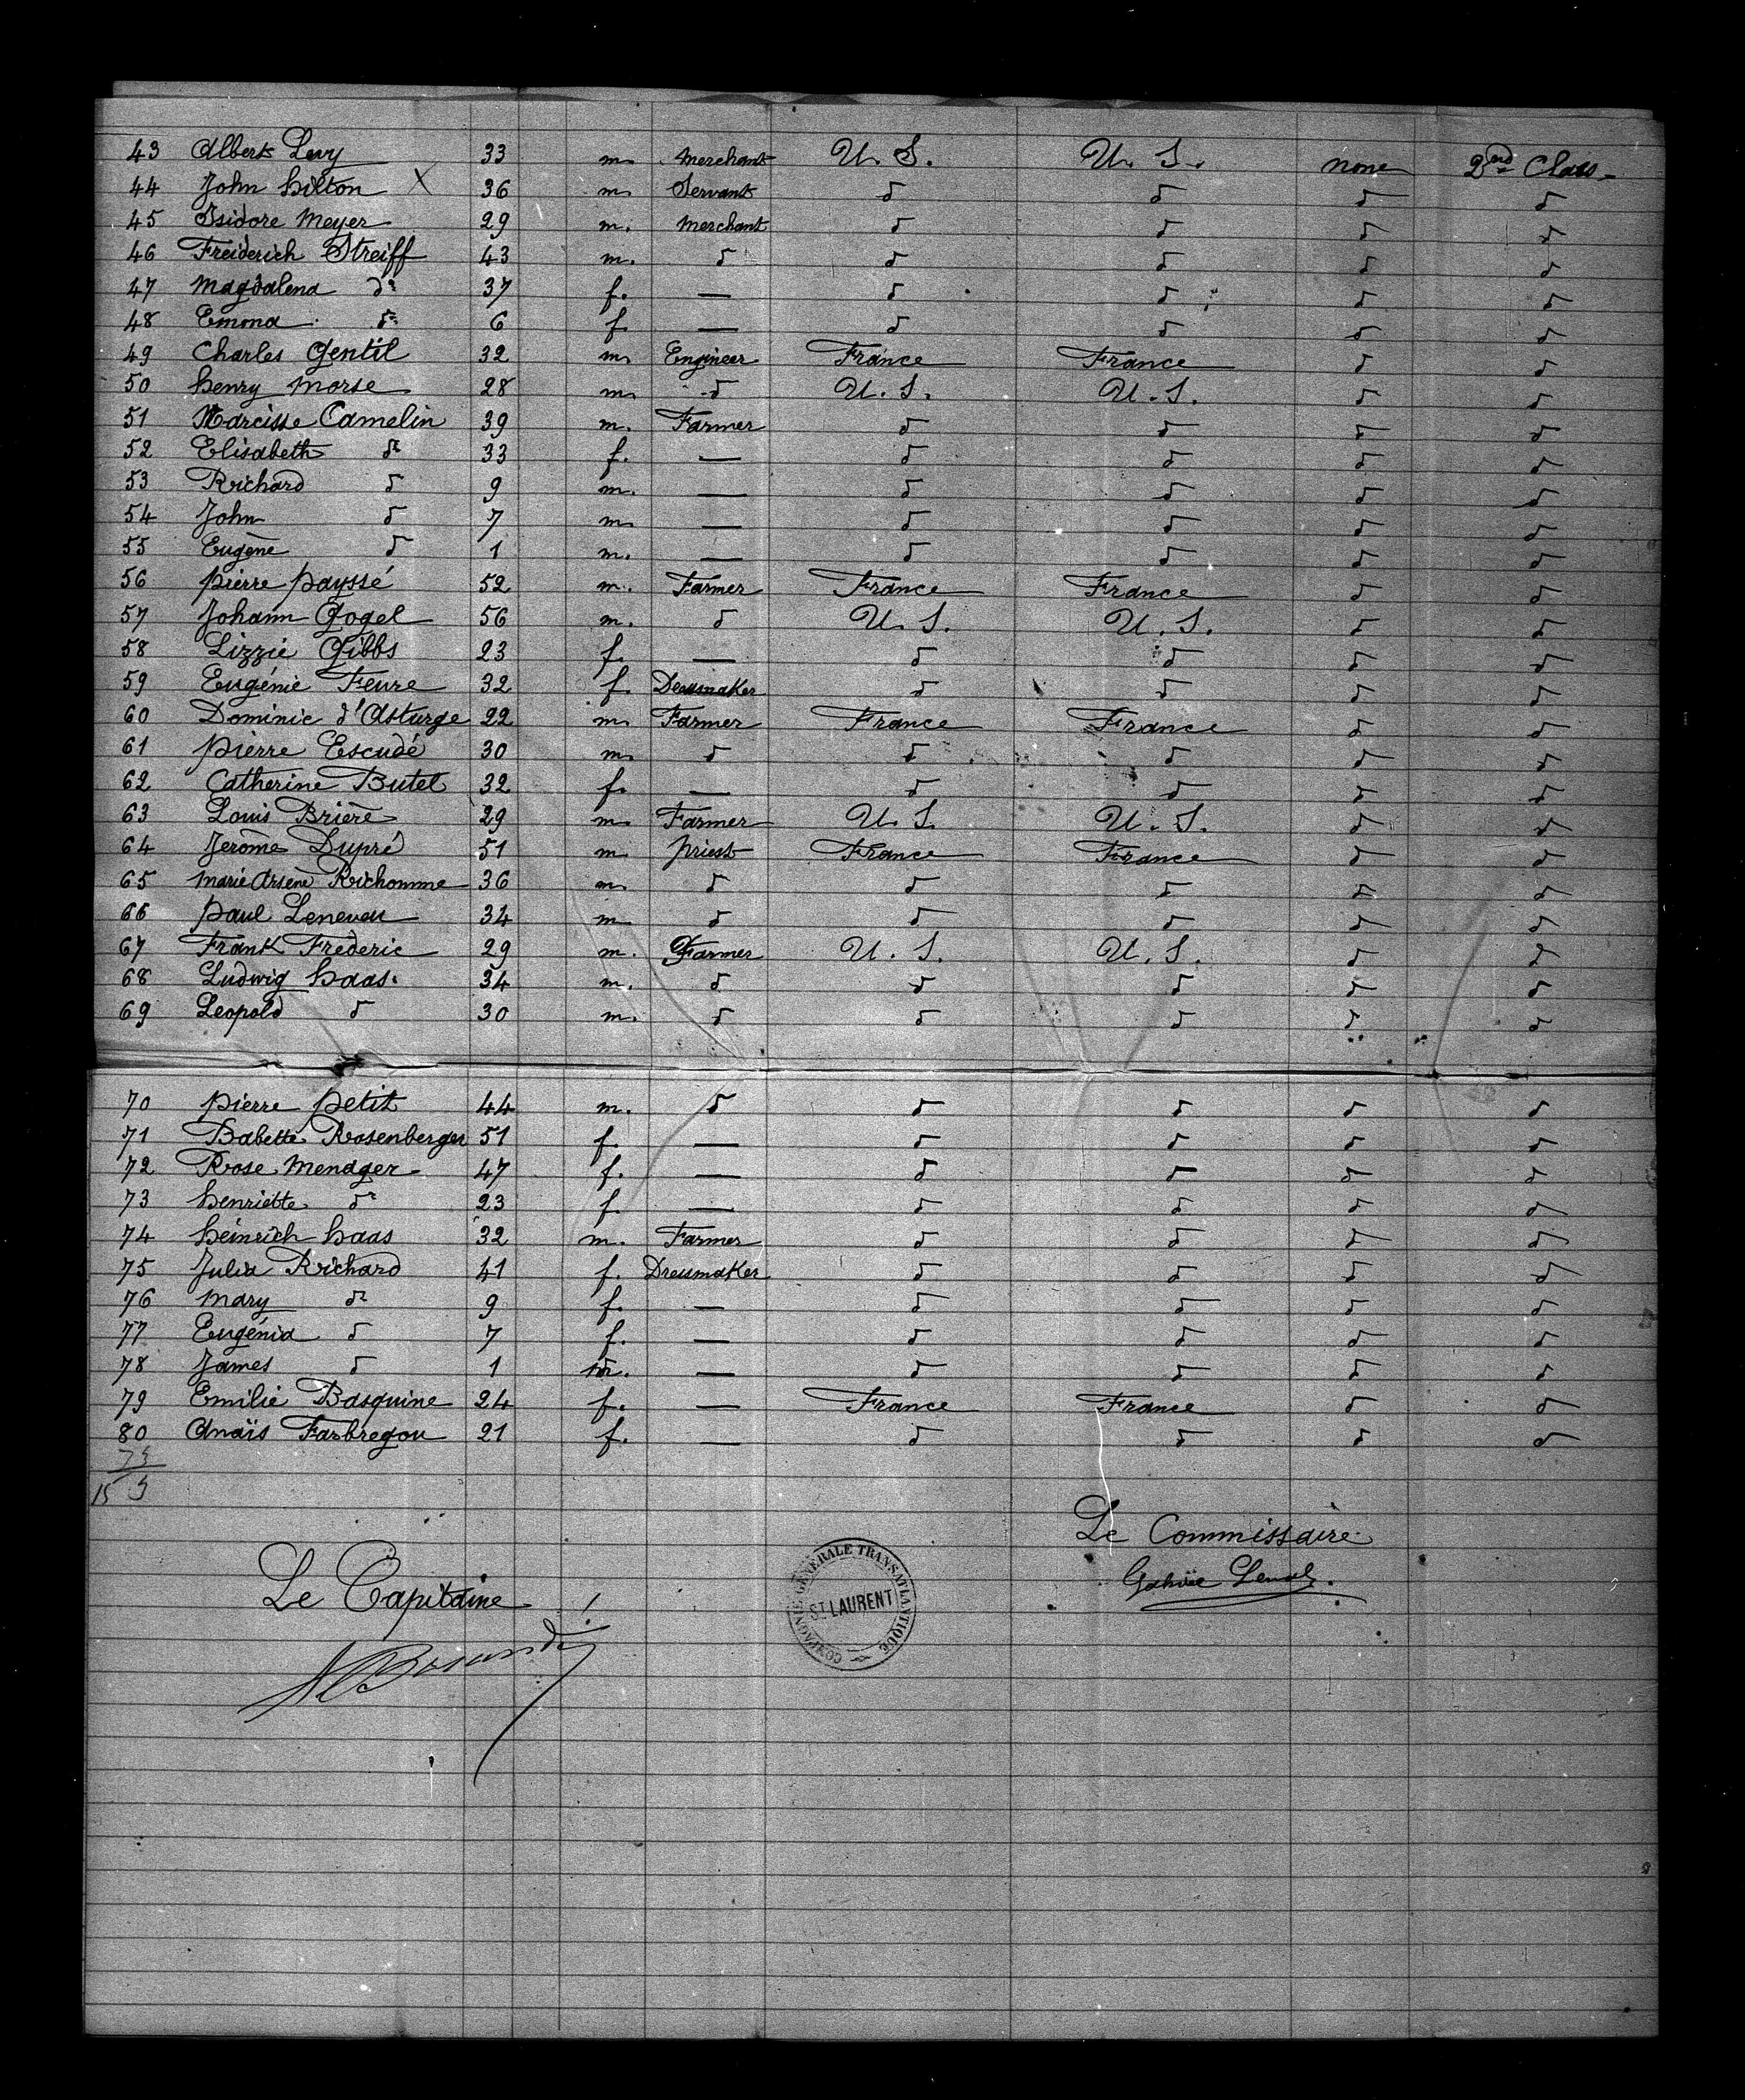 43 Albert Levy 33 m. Merchant U. S. U. S. none 2nd Class
44 John Hilton X 36 m. Servant d d d d
45 Isidore Meyer 29 m. Merchant d d d d
46 Freiderich Streiff 43 m. d d d d d
47 Magdalena do 37 f. — d d d d
48 Emona do 6 f. — d d d d
49 Charles Gentil 32 m. Engineer France France d d
50 Henry Morse 28 m. d U. S. U. S. d d
51 Narcisse Camelin 39 m. Farmer d d d d
52 Elisabeth do 33 f. — d d d d
53 Richard d 9 m. — d d d d
54 John d 7 m. — d d d d
55 Eugène d 1 m. — d d d d
56 Pierre Payssé 52 m. Farmer France France d d
57 Johann Gogel 56 m. d U. S. U. S. d d
58 Lizzie Gibbs 23 f. — d d d d
59 Eugénie Feure 32 f. Dressmaker d d d d
60 Dominic d'Asturge 22 m. Farmer France France d d
61 Pierre Escudé 30 m. d d d d d
62 Catherine Butel 32 f. — d d d d
63 Louis Brière 29 m. Farmer U. S. U. S. d d
64 Jerôme Dupré 51 m. Priest France France d d
65 Marie Arsène Richomme 36 m. d d d d d
66 Paul Leneveu 34 m. d d d d d
67 Frank Frederic 29 m. Farmer U. S. U. S. d d
68 Ludwig Haas 34 m. d d d d d
69 Leopold d 30 m. d d d d d
70 Pierre Petit 44 m. d d d d d
71 Babette Rosenberger 51 f. — d d d d
72 Rose Mendger 47 f. — d d d d
73 Henriette do 23 f. — d d d d
74 Heinrich Haas 32 m. Farmer d d d d
75 Julia Richard 41 f. Dressmaker d d d d
76 Mary do 9 f. — d d d d
77 Eugénia d 7 f. — d d d d
78 James d 1 m. — d d d d
79 Emilie Basquine 24 f. — France France d d
80 Anaïs Farbregou 21 f. — d d d d
Le Commissaire
Le Capitaine
COMPAGNIE GÉNÉRALE TRANSATLANTIQUE
ST LAURENT